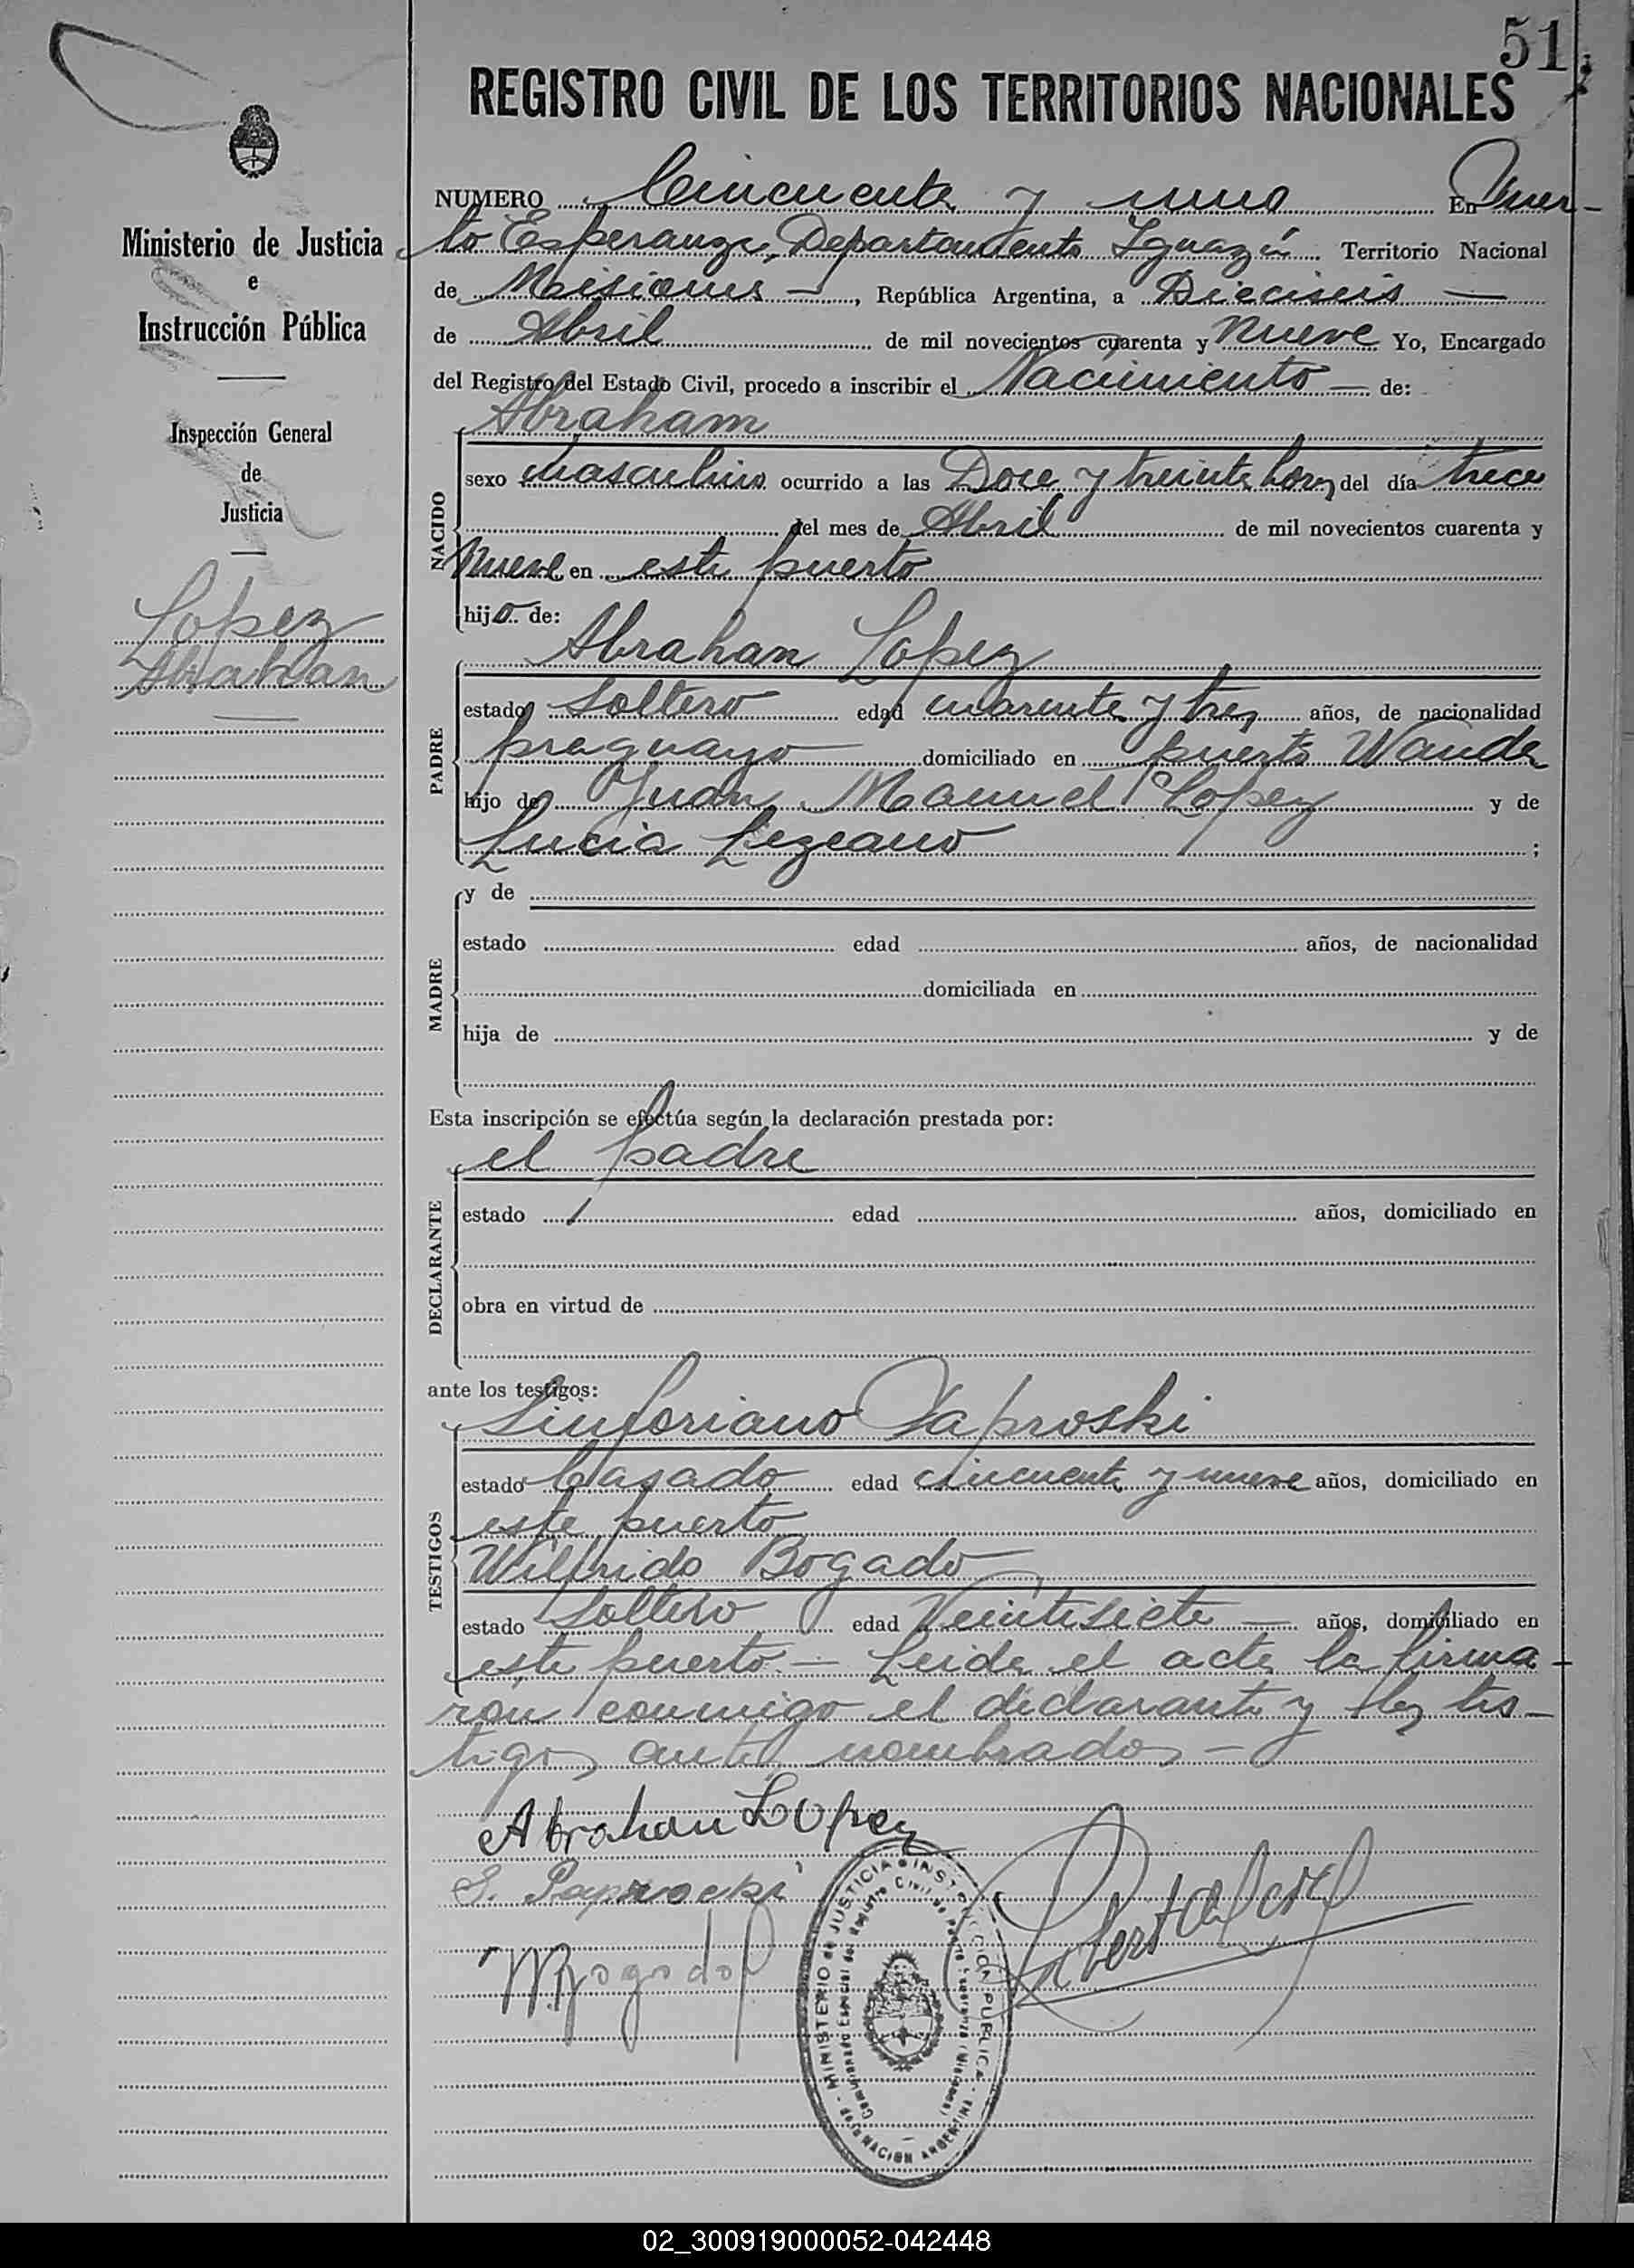 51
REGISTRO CIVIL DE LOS TERRITORIOS NACIONALES
Ministerio de Justicia
e
Instrucción Pública
Inspección General
de
Justicia
Lopez
Abrahan
NUMERO Cincuenta y uno En Puer-
to Esperanza, Departamento Iguazú Territorio Nacional
de Misiones —, República Argentina, a Dieciseis —
de Abril de mil novecientos cuarenta y Nueve Yo, Encargado
del Registro del Estado Civil, procedo a inscribir el Nacimiento — de:
NACIDO
Abraham
sexo masculino ocurrido a las Doce y treinta horas del día trece
del mes de Abril de mil novecientos cuarenta y
Nueve en este puerto
hijo de:
PADRE
Abrahan Lopez
estado Soltero edad cuarenta y tres años, de nacionalidad
praguayo domiciliado en puerto Wanda
hijo de Juan Manuel Lopez y de
Lucia Lezcano ;
MADRE
y de
estado edad años, de nacionalidad
domiciliada en
hija de y de
Esta inscripción se efectúa según la declaración prestada por:
DECLARANTE
el padre
estado edad años, domiciliado en
obra en virtud de
ante los testigos:
TESTIGOS
Sinforiano Paproski
estado Casado edad cincuenta y nueve años, domiciliado en
este puerto
Wilfrido Bogado
estado Soltero edad Veintisiete — años, domiciliado en
este puerto.— Leida el acta la firma-
ron conmigo el declarante y los tes-
tigos antes nombrados —
Abrahan Lopez
S. Paprocki
WBogado
MINISTERIO de JUSTICIA e INSTRUCCION PUBLICA
NACION ARGENTINA
02_300919000052-042448